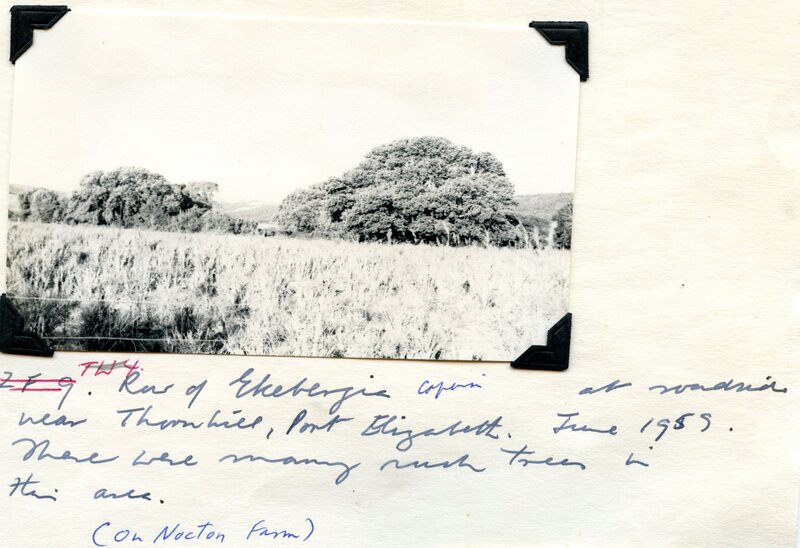 ZF 9. TW4. Row of Ekebergia at roadside
near Thornhill, Port Elizabeth. June 1959.
There were many such trees in
this area.
(on Nocton Farm)